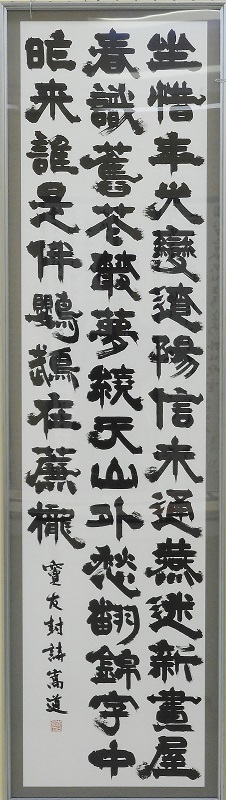 坐惜年光變遼陽信未通燕迷新畫屋
春識舊花叢夢繞天山外愁翻錦字中
昨来誰是伴鸚鵡在簾櫳
竇友封詩嵩道